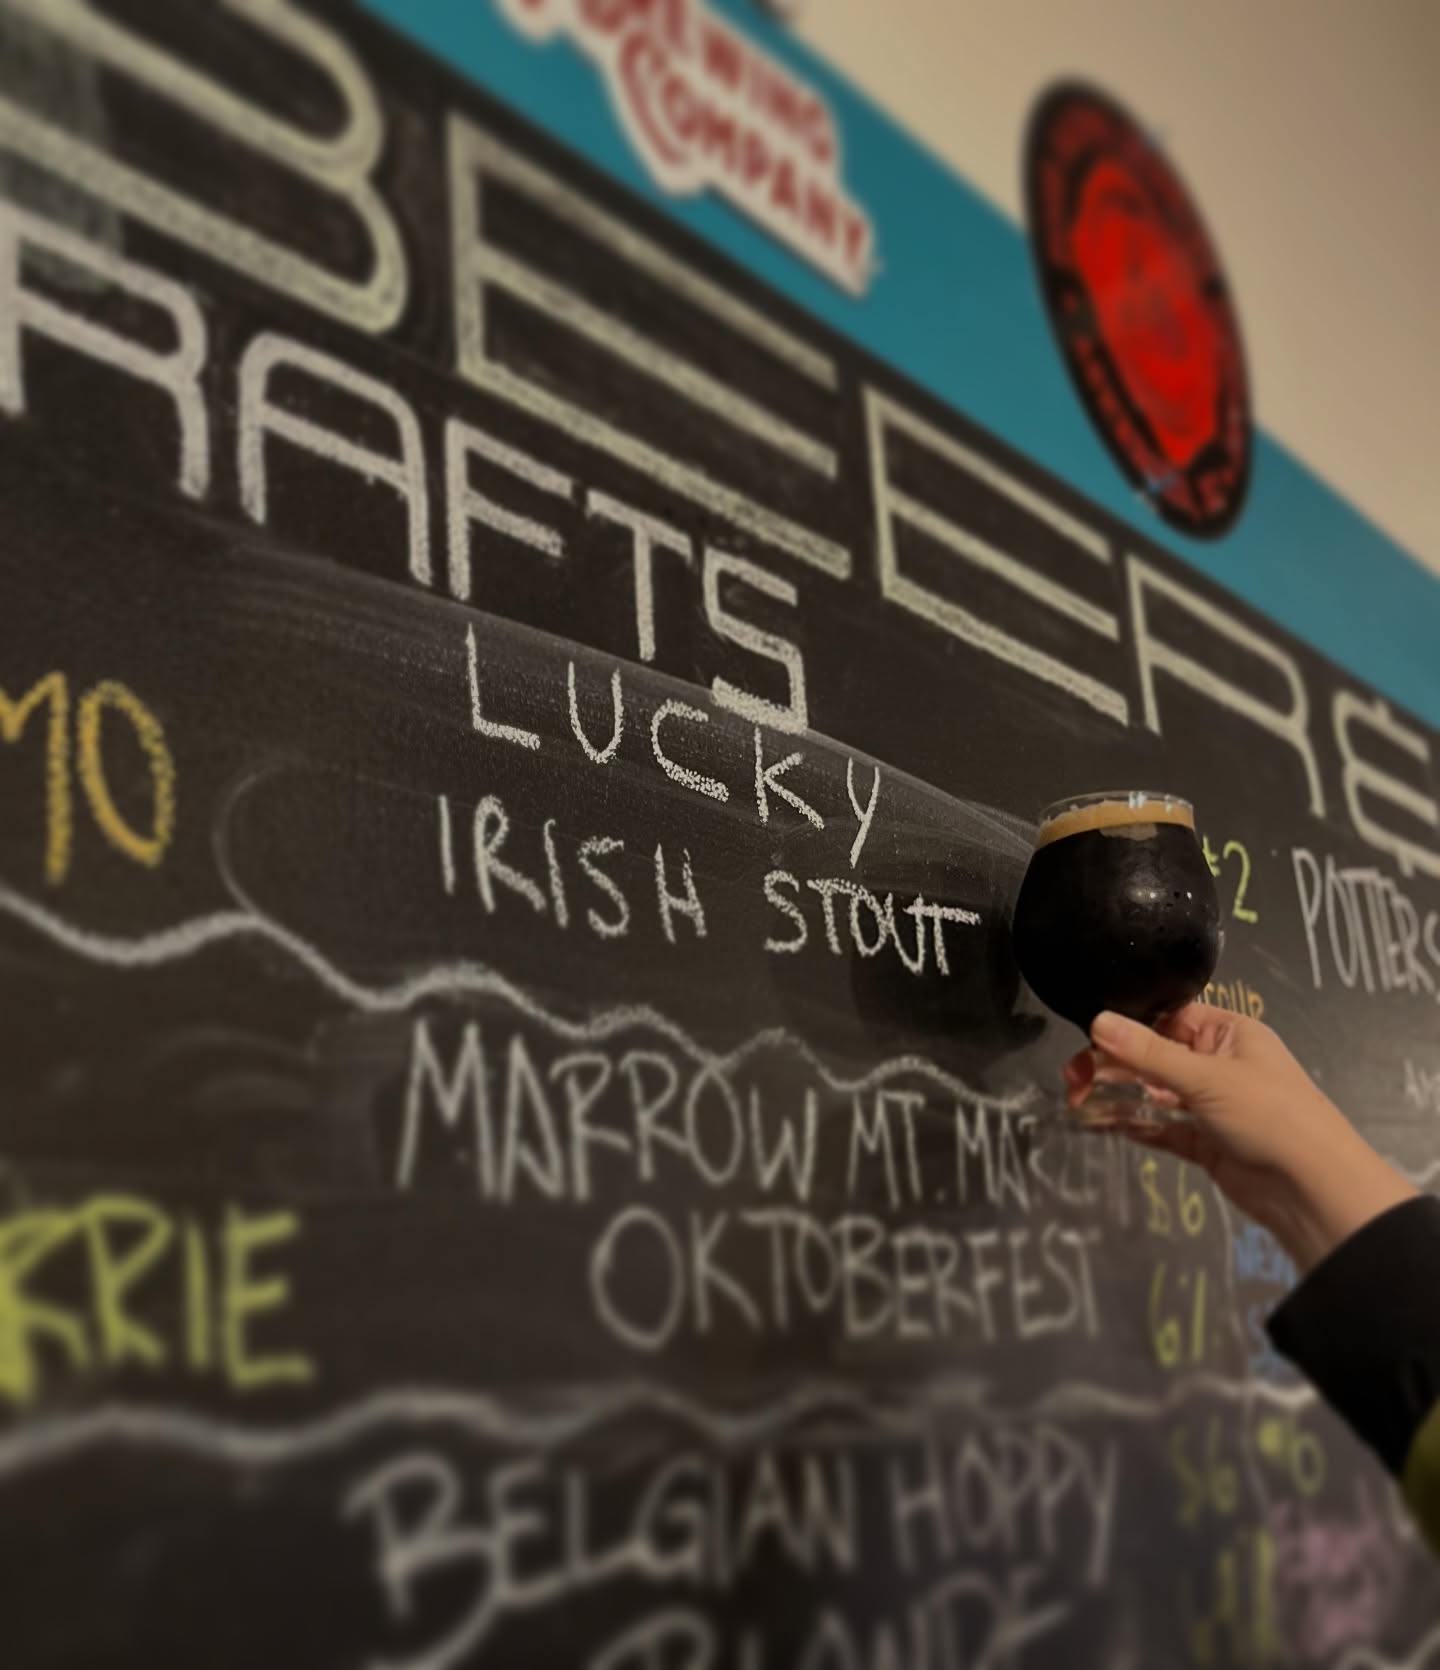 BREWING
COMPANY
BEER &
RAFTS
MO
LUCKY
IRISH STOUT
#2
POTTERS
MARROW MT. MARZEN
$6
OKTOBERFEST
6%
RRIE
BELGIAN HOPPY
$6
#6
BLONDE